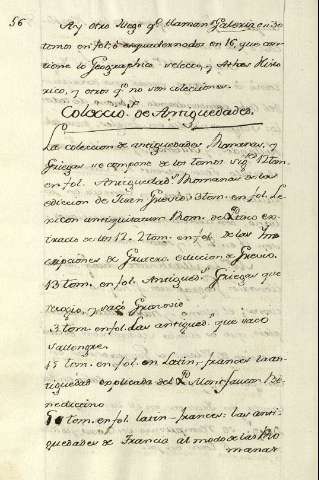 56
Ay otro Juego qe llaman Galeria en 30
tomos en fol. ò enquadernados en 16, que con
tiene la Geographia selecta, y Athas Histo
rico, y otros qe no son colecciones.
Coleccion. de Antiguedades.
La coleccion de antiguedades Romanas, y
Griegas se compone de los tomos sigtes 12 tom.
en fol. Antiguedads Romanas de las
edicion de Juan Grevio. 3 tom. en fol. Le
xicon antiquitatum Rom. de Pitisco ex
tracto de los 12. 2 tom. en fol. de las Ins
cripciones de Grutero. edicion de Grevio.
13 tom. en fol. Antigueds Griegas que
recogio, y sacó Gronovio
3 tom. en fol. Las antigueds que sacò
Sallengre.
15 tom. en fol. en Latin, y frances la an
tiguedad explicada del P. Montfaucon Be
nedictino
5 tom. en fol. latin-frances: las anti-
guedades de Francia al modo de las Ro
manas